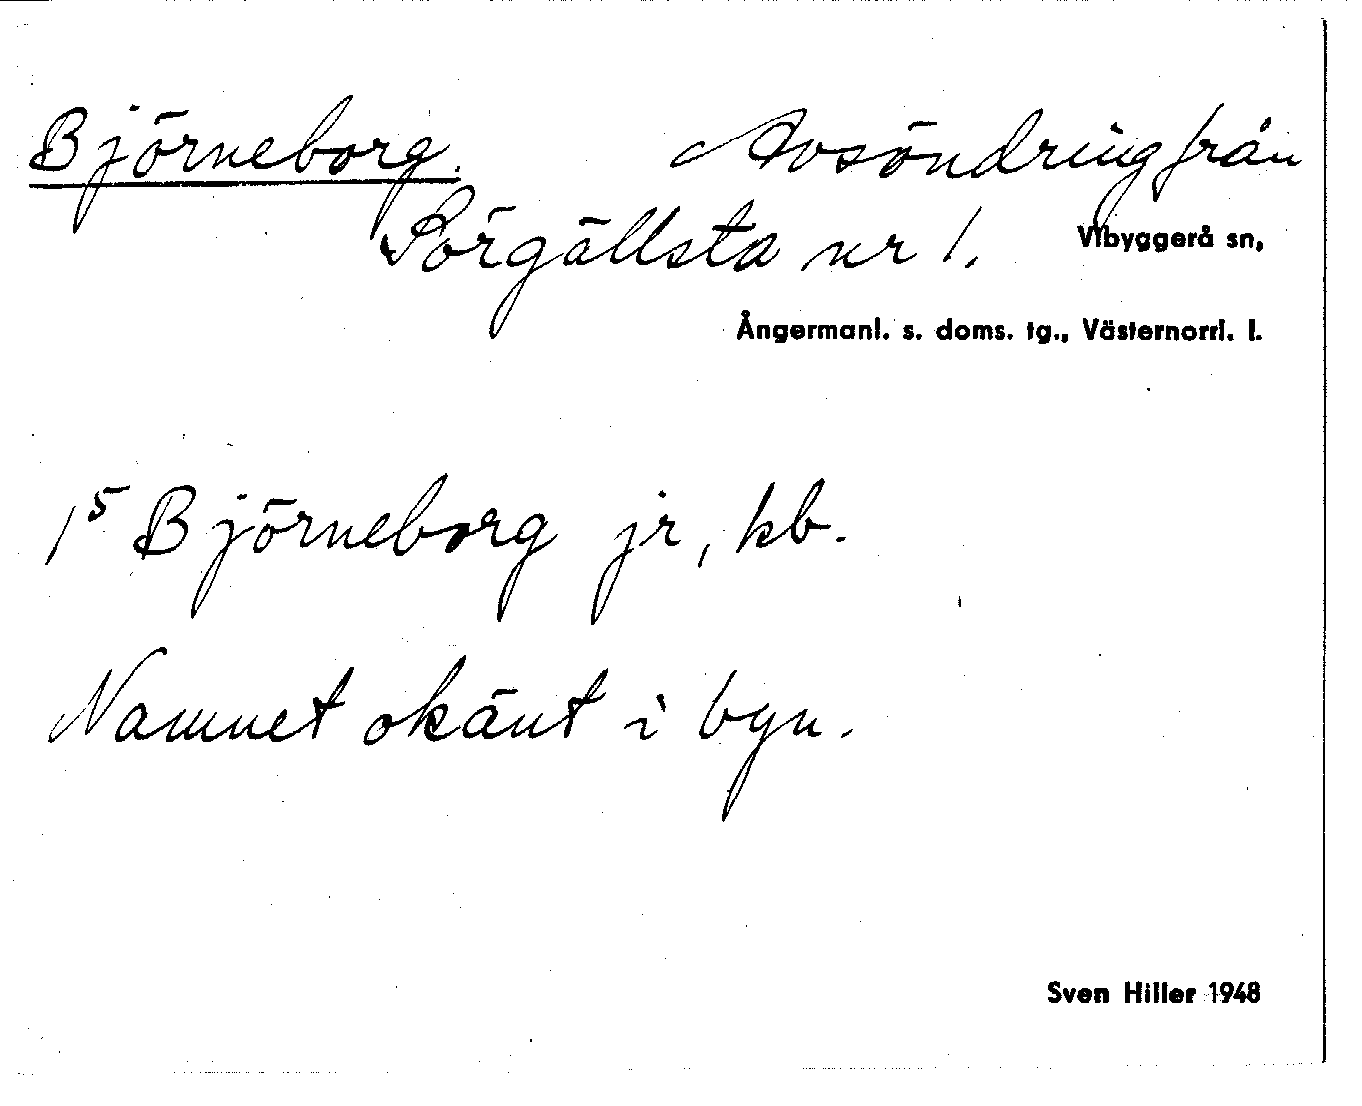 Björneborg. Avsöndring från
Sörgällsta nr 1. Vibyggerå sn,
Ångermanl. s. doms. tg., Västernorrl. l.
1⁵ Björneborg jr, kb.
Namnet okänt i byn.
Sven Hiller 1948